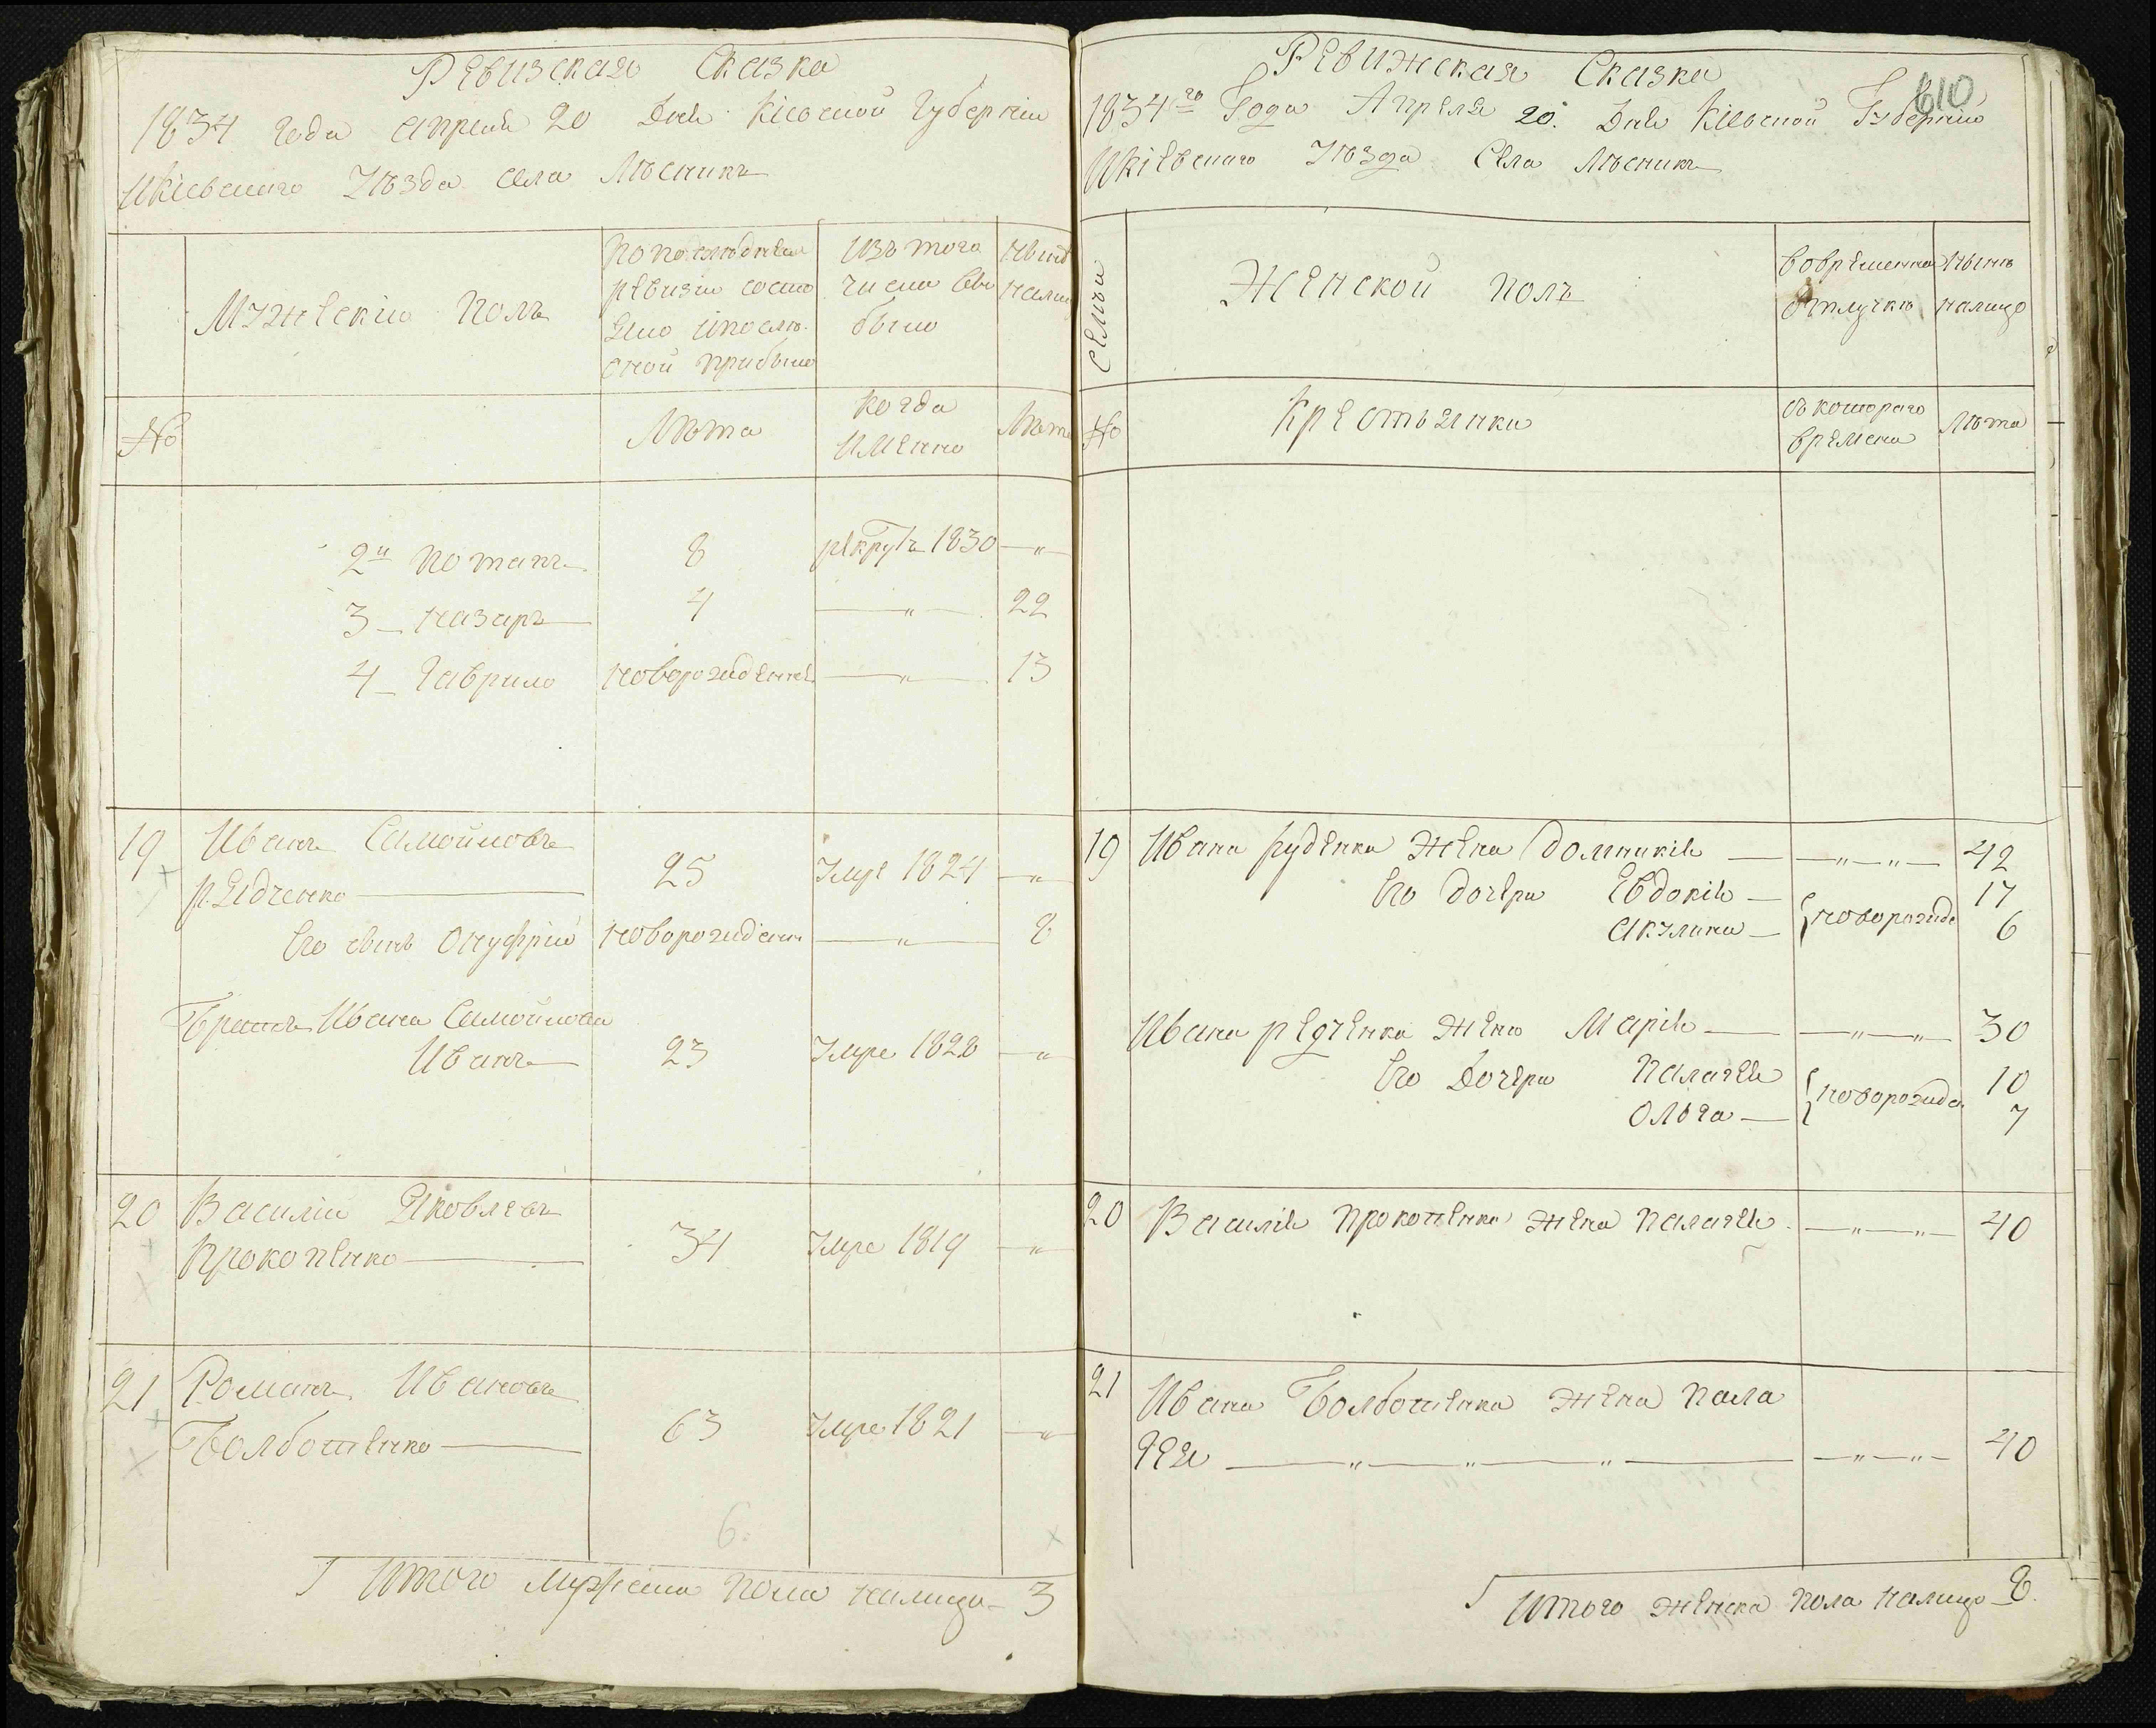 Ревизская Сказка
1834 года Апреля 20 Дня Кіевской Губерніи
и Кіевскаго Уѣзда села Лѣсникъ
Мужескій Полъ
По последней
ревизіи состо
яло и после
оной прибыло
Изъ того
числа вы
было
Нынѣ
нали
№
Лѣта
Когда
Именно
Лѣта
2й Потапъ 8 рекрутъ 1830 — „ —
3 — Назаръ — 4 — „ — 22
4 — Гаврило новорожденн — „ — 13
19 Иванъ Самойловъ
Редченко — 25 Умре 1824 — „
Его сынъ Онуфрій новорожденн — „ — 8
Братъ Ивана Самойлова
Иванъ — 23 Умре 1828 — „
20 Василій Яковлевъ
Прокопенко — 34 Умре 1819 — „
21 Романъ Ивановъ
Болботенко — 63 Умре 1821 — „
6.
Итого мужеска пола налицо — 3
610
Ревижская Сказка
1834го Года Апреля 20. Дня Кіевской Губерніи
и Кіевскаго Уѣзда Села Лѣсникъ
Семьи
Женской полъ
Вовременной
отлучкѣ
Нынѣ
налицо
№
Крестьянки
Съ котораго
времени
Лѣта
19 Ивана Руденка жена Домникія — — „ — „ — 42
Его дочери Евдокія — 17
Акулина — } новорожде 6
Ивана Редченка жена Марія — — „ — „ — 30
Его Дочери Палагея 10
Ольга — } новорожде. 7
20 Василія Прокопенка жена Палагея. — „ — „ — 40
21 Ивана Болботенка жена Пала
гея — „ — „ — „ — — „ — „ — 40
Итого женска пола налицо 8.